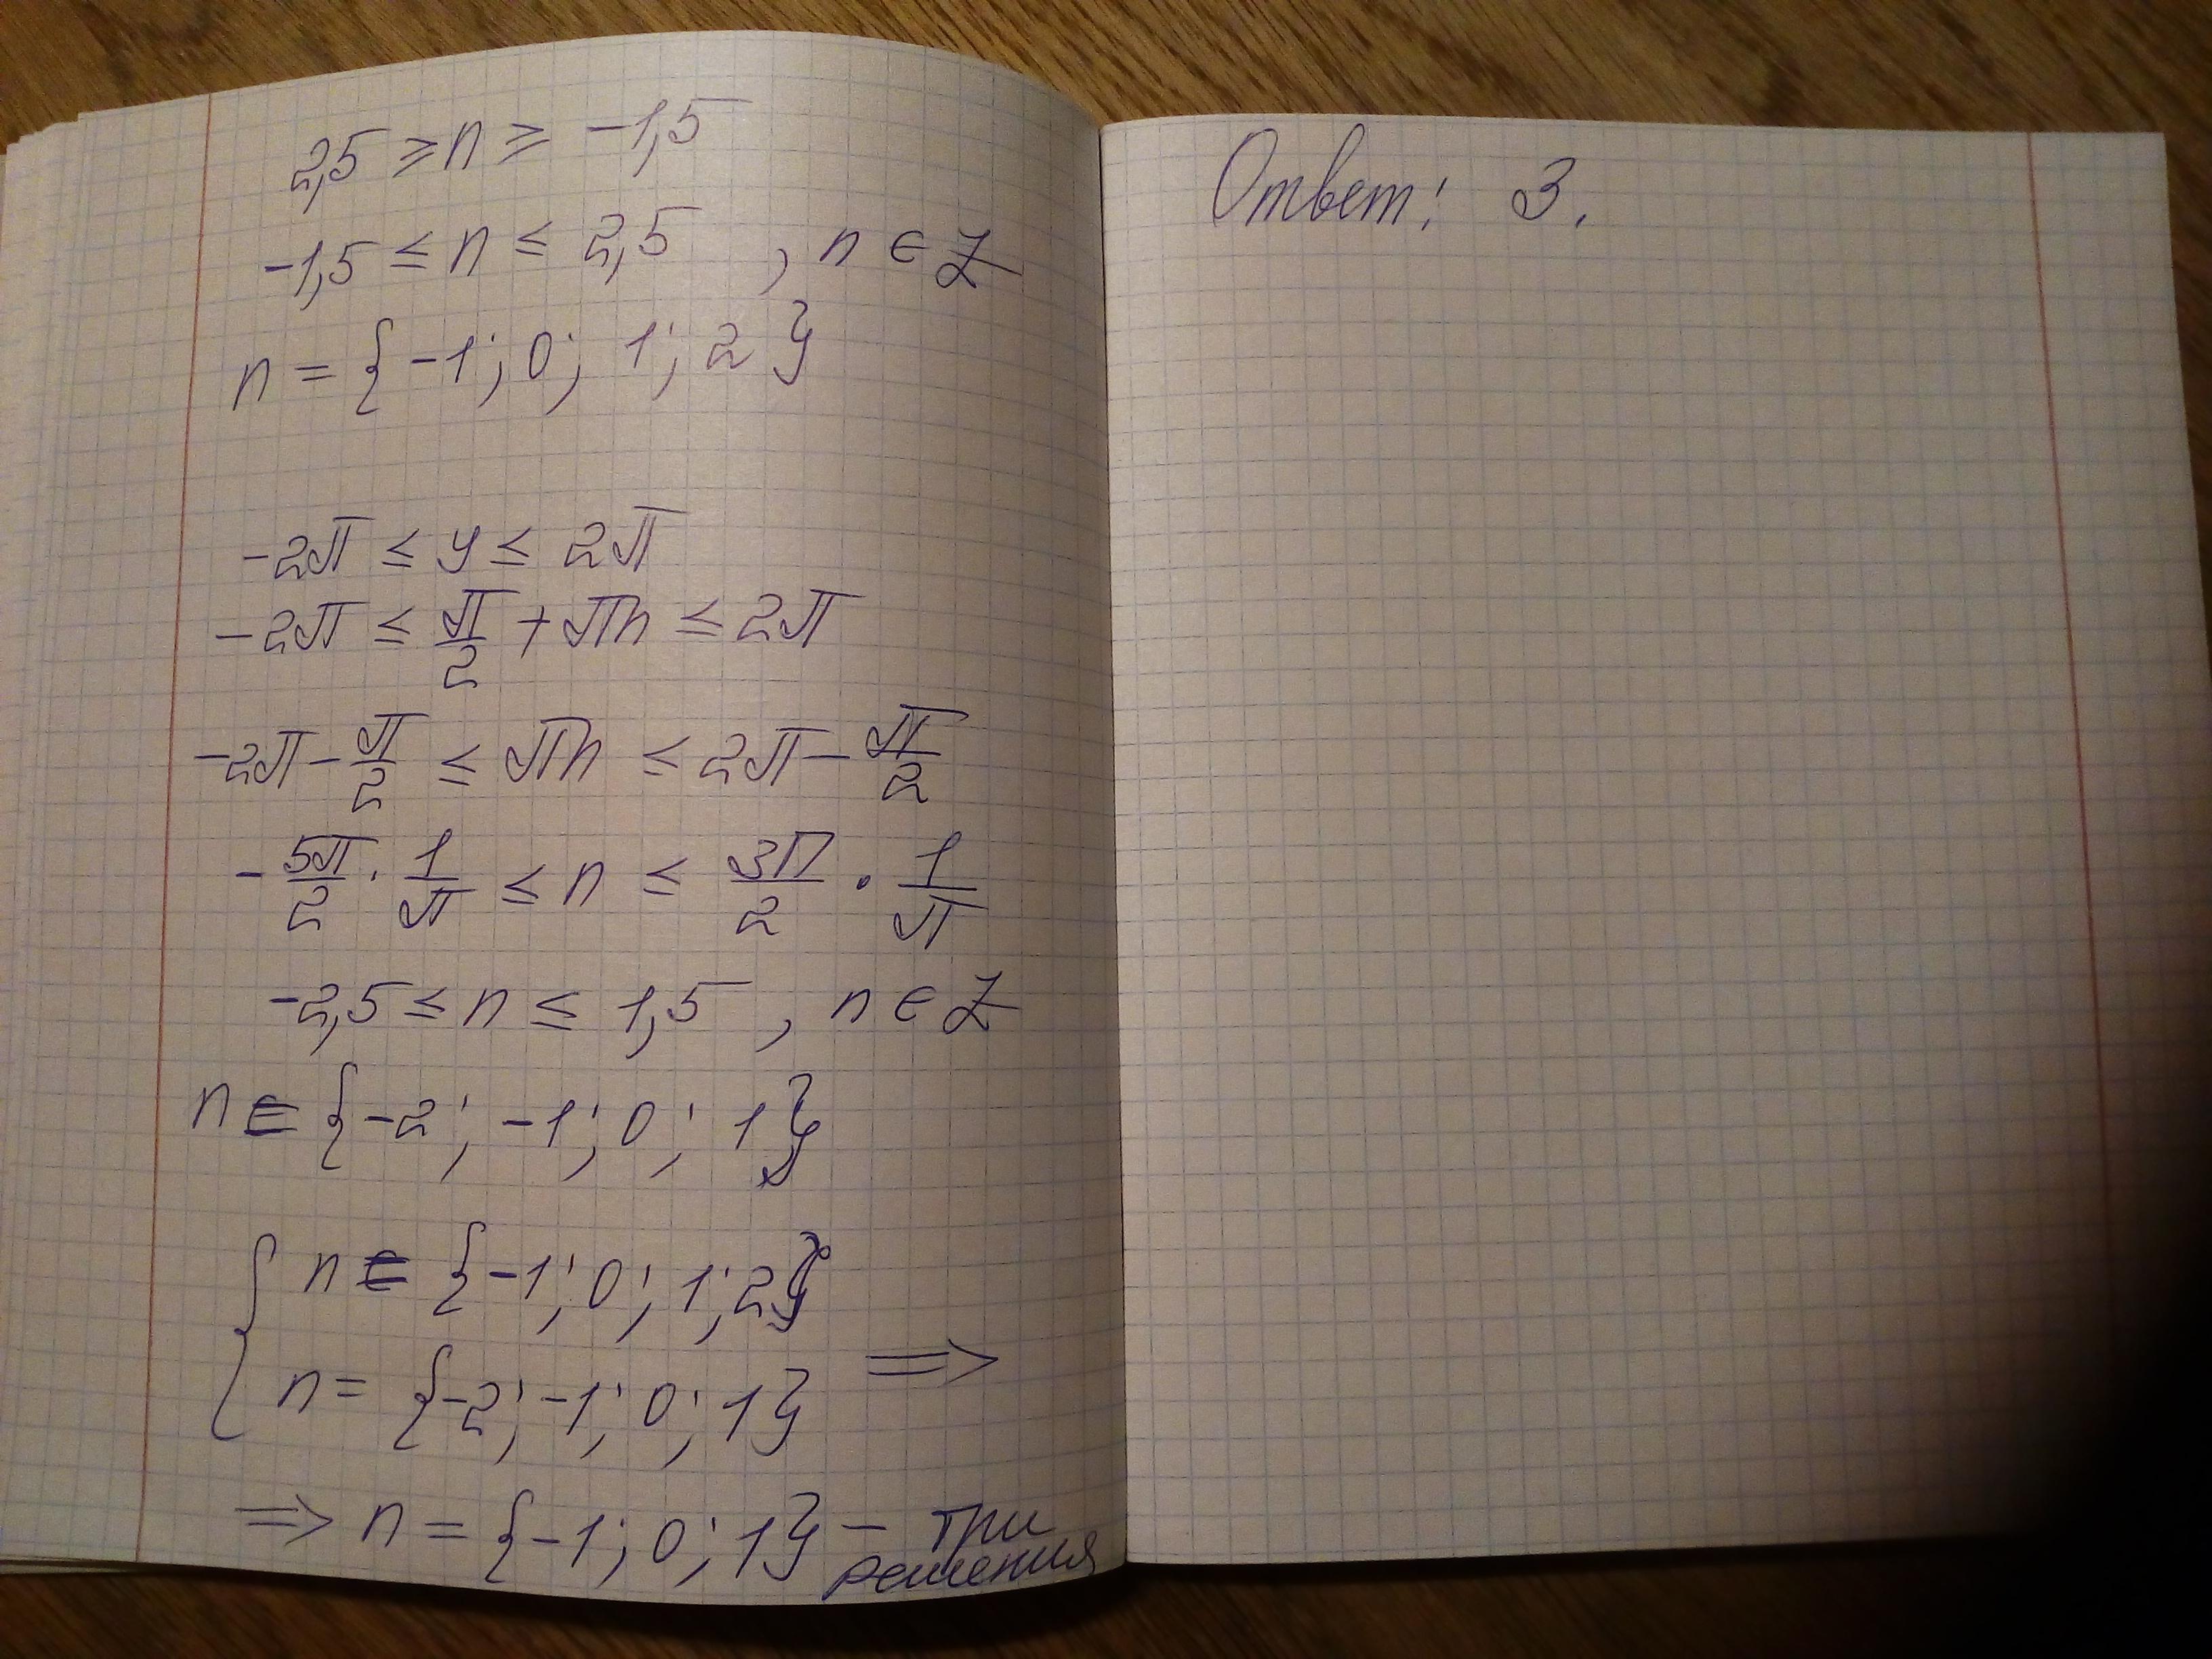 2,5 ≥ n ≥ -1,5
-1,5 ≤ n ≤ 2,5 , n ∈ Z
n = {-1; 0; 1; 2}
-2π ≤ y ≤ 2π
-2π ≤ π/2 + πn ≤ 2π
-2π - π/2 ≤ πn ≤ 2π - π/2
- 5π/2 · 1/π ≤ n ≤ 3π/2 · 1/π
-2,5 ≤ n ≤ 1,5 , n ∈ Z
n ∈ {-2; -1; 0; 1}
{ n ∈ {-1; 0; 1; 2}
n = {-2; -1; 0; 1} ⇒
⇒ n = {-1; 0; 1} - три
решения
Ответ: 3.